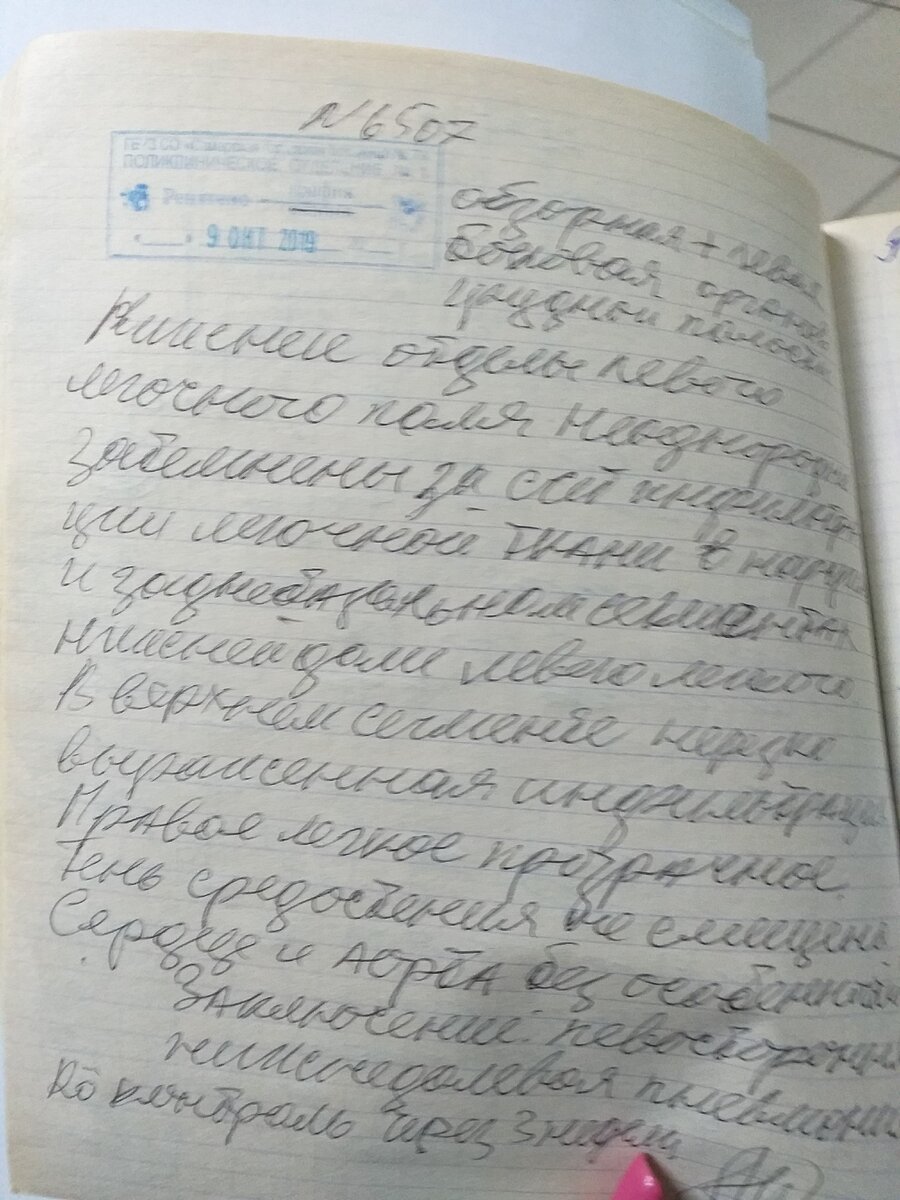 N 6507
ПОЛИКЛИНИЧЕСКОЕ ОТДЕЛЕНИЕ № 1
Рентгено
9 ОКТ 2019
обзорная + левая
боковая органов
грудной полости
Нижние отделы левого
легочного поля неоднородно
затемнены за счёт инфильтра
ции легочной ткани в наруж
и заднебазальном сегментах
нижней доли левого легкого
В верхнем сегменте нерезко
выраженная инфильтрация
Правое легкое прозрачное.
Тень средостения не смещена.
Сердце и аорта без особенностей
Заключение: левосторонняя
нижнедолевая пневмония
Rö контроль через 3 недели